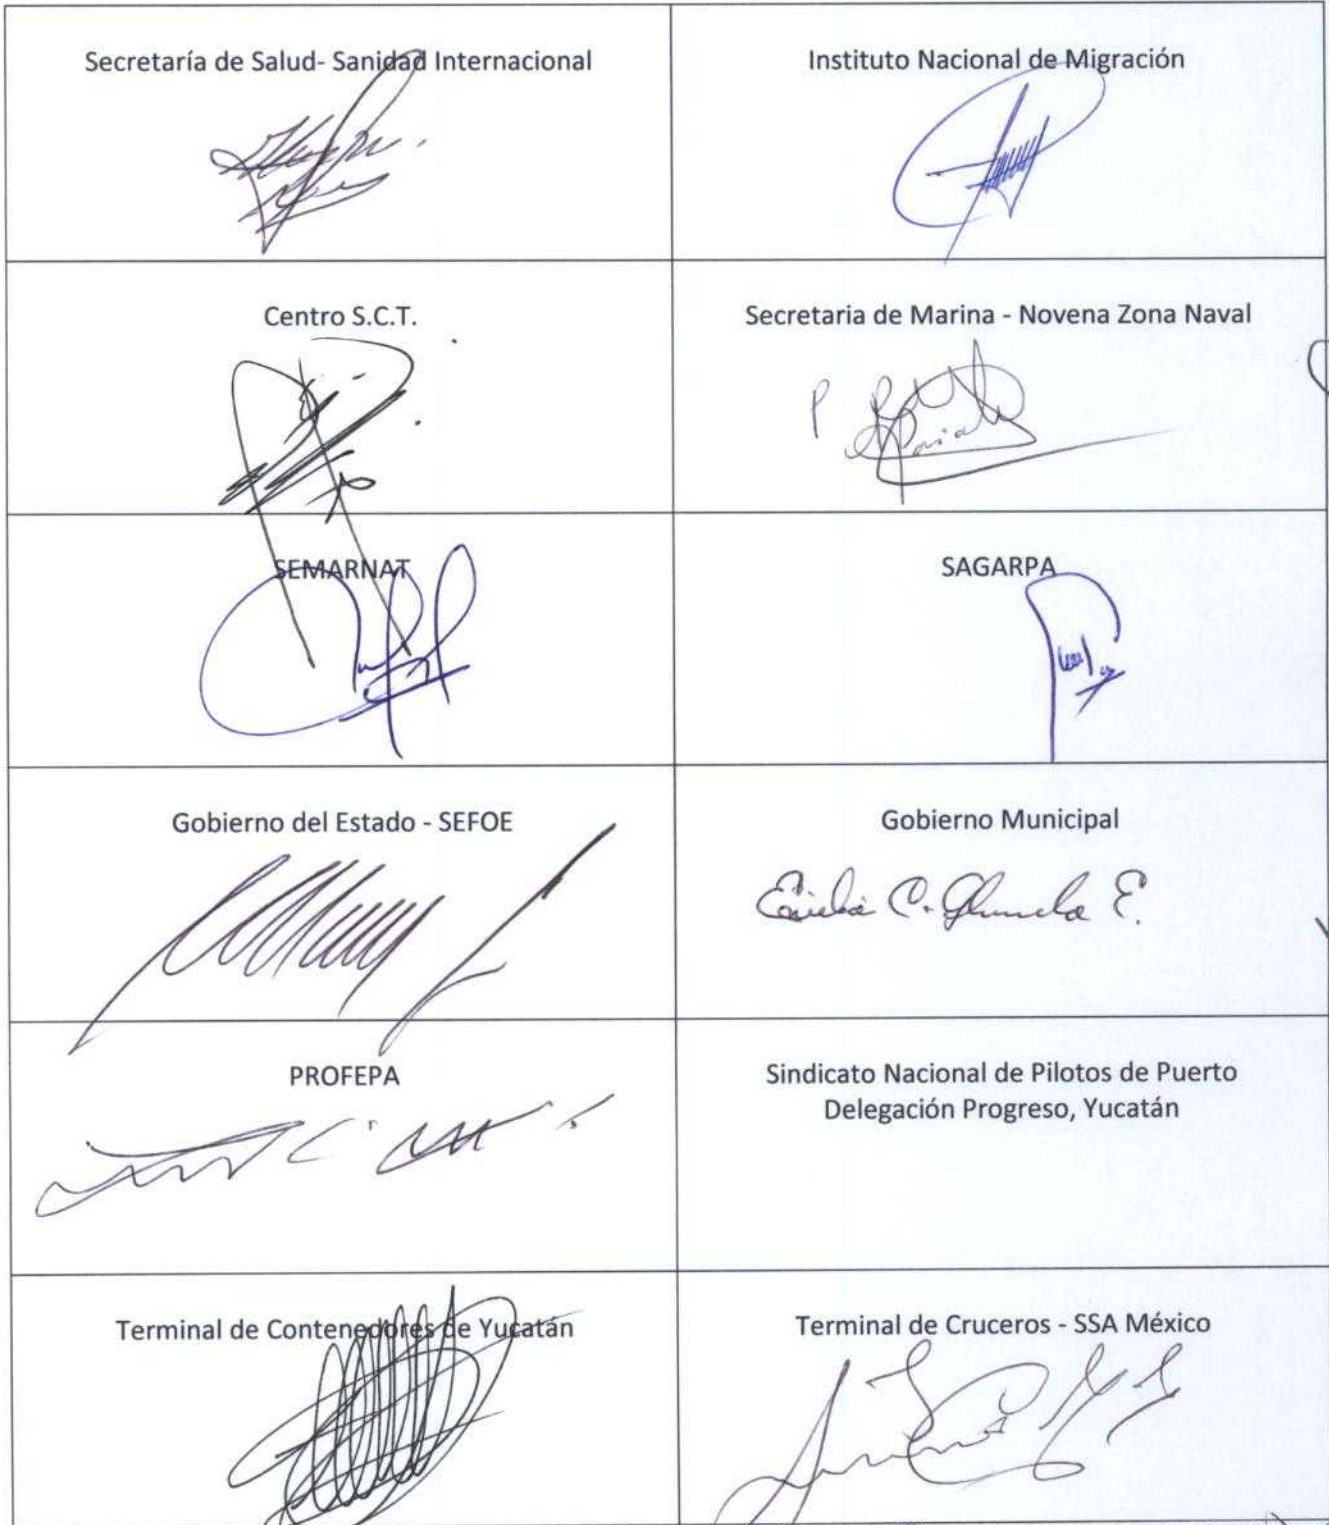 Secretaría de Salud- Sanidad Internacional
Instituto Nacional de Migración
Centro S.C.T.
Secretaria de Marina - Novena Zona Naval
P
SEMARNAT
SAGARPA
Gobierno del Estado - SEFOE
Gobierno Municipal
C. E.
PROFEPA
Sindicato Nacional de Pilotos de Puerto
Delegación Progreso, Yucatán
Terminal de Contenedores de Yucatán
Terminal de Cruceros - SSA México